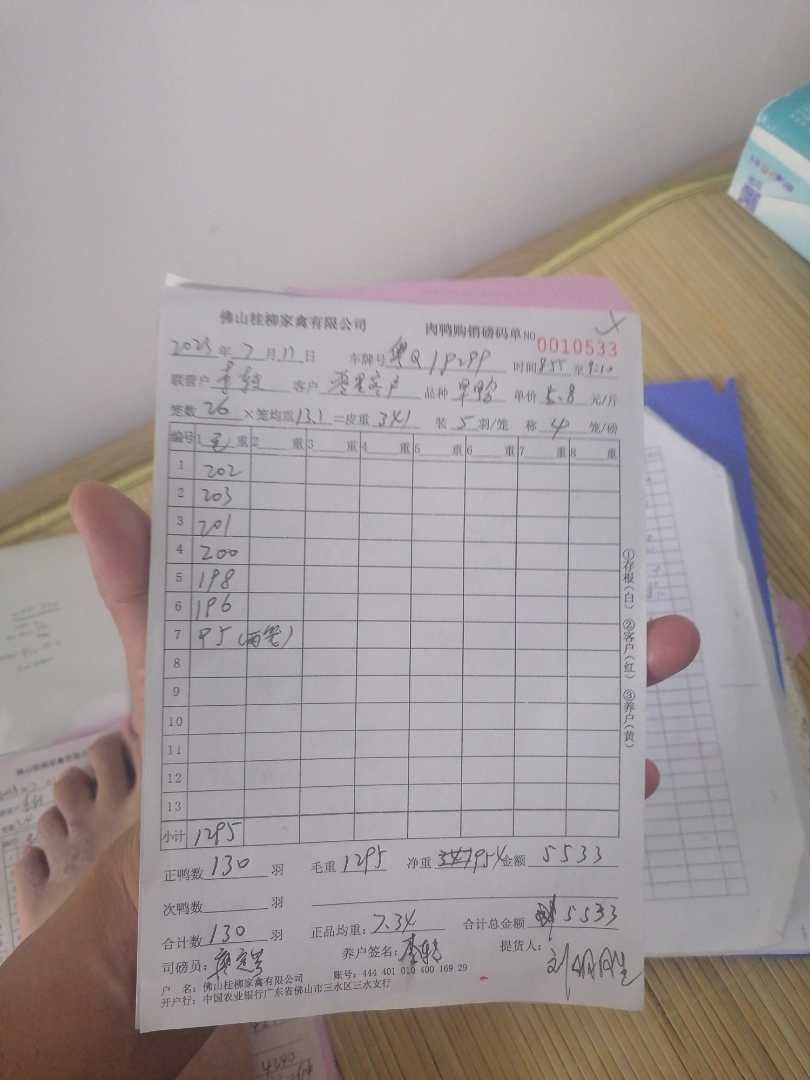 佛山桂柳家禽有限公司 肉鸭购销磅码单 NO 0010533
2023年 7月 17日 车牌号 粤Q18299 时间 8:55 至 9:10
联营户 客户 零星客户 品种 旱鸭 单价 5.8 元/斤
笼数 26 ×笼均重 13.1 =皮重 341 装 5 羽/笼 称 4 笼/磅
编号 1 毛 重 2 重 3 重 4 重 5 重 6 重 7 重 8 重
1 202
2 203
3 201
4 200
5 198
6 196
7 95(两笼)
8
9
10
11
12
13
小计 1295
正鸭数 130 羽 毛重 1295 净重 954 金额 5533
次鸭数 羽
合计数 130 羽 正品均重: 7.34 合计总金额 5533
司磅员: 养户签名: 提货人:
户 名: 佛山桂柳家禽有限公司 账号: 444 401 010 400 169 29
开户行: 中国农业银行广东省佛山市三水区三水支行
①存根(白) ②客户(红) ③养户(黄)
佛山桂柳家禽有限公
4340